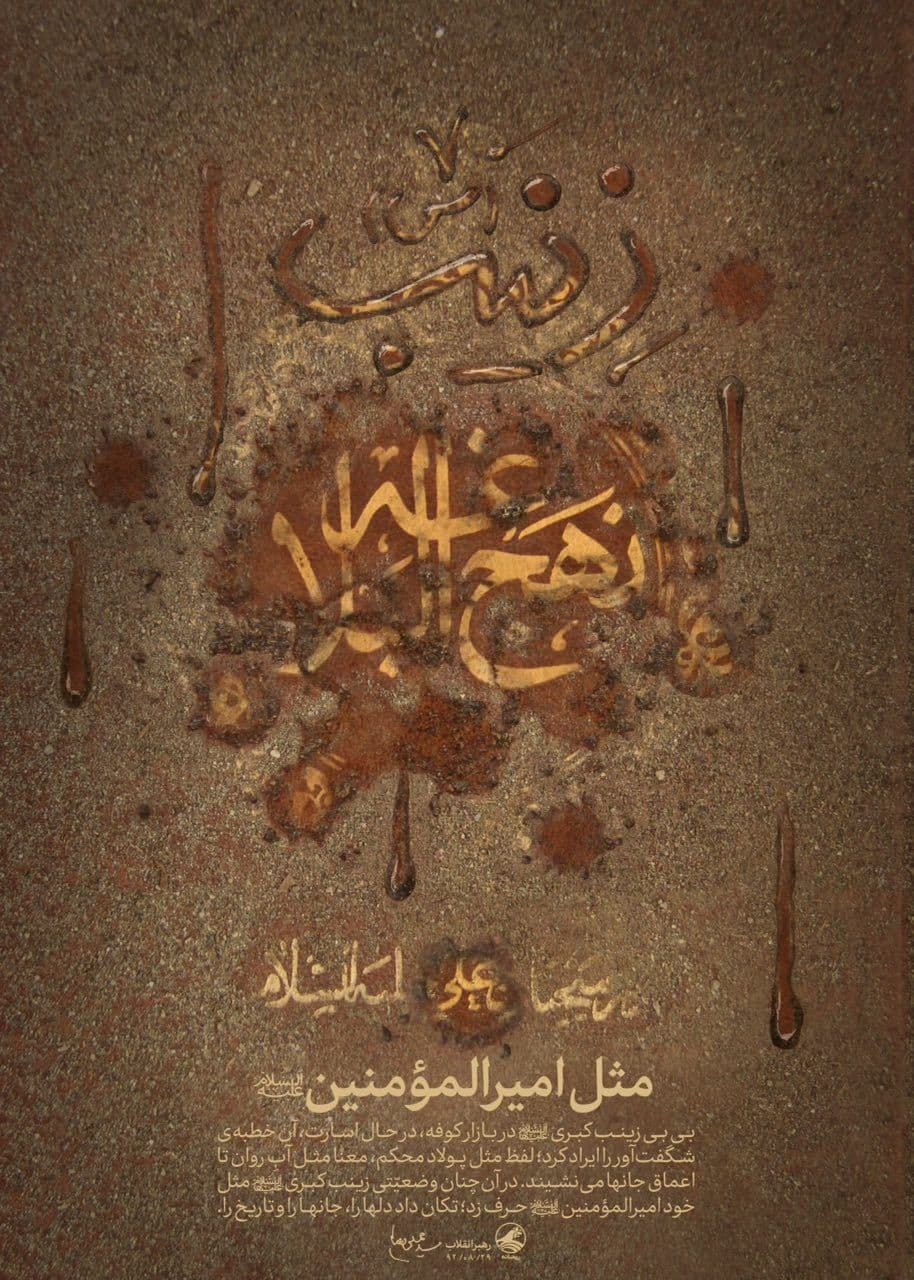 زینب
نهج البلاغه
علی علیه‌السلام
مثل امیرالمؤمنین علیه‌السلام
بی‌بی زینب کبری در بازار کوفه، در حال اسارت، آن خطبه‌ی
شگفت‌آور را ایراد کرد؛ لفظ مثل پولاد محکم، معنا مثل آب روان تا
اعماق جانها می‌نشیند. در آن چنان وضعیّتی زینب کبری مثل
خود امیرالمؤمنین حرف زد؛ تکان داد دلها را، جانها را و تاریخ را.
رهبر انقلاب
۹۲/۰۸/۲۹